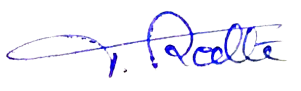 T. Roelte